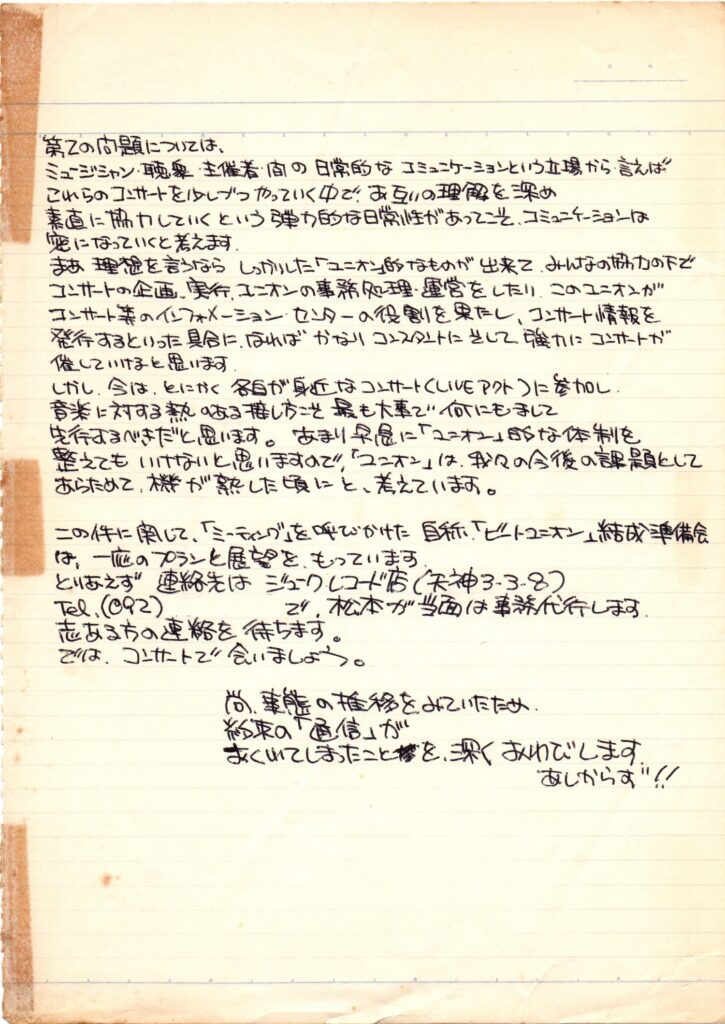 第2の問題については、
ミュージシャン・聴衆・主催者・間の日常的なコミュニケーションという立場から言えば
これらのコンサートを少しづつやっていく中で、お互いの理解を深め
素直に協力していくという弾力的な日常性があってこそ、コミュニケーションは
密になっていくと考えます.
まあ理想を言うなら しっかりした「ユニオン」的なものが出来て、みんなの協力の下で
コンサートの企画、実行、ユニオンの事務処理・運営をしたり、このユニオンが
コンサート等のインフォメーション・センターの役割を果たし、コンサート情報を
発行するといった具合に、なればかなりコンスタントにそして強力にコンサートが
催していけると思います.
しかし、今は、とにかく各自が身近なコンサート(LIVEアクト)に参加し、
音楽に対する熱のある推し方こそ最も大事で何にもまして
先行するべきだと思います。あまり早急に「ユニオン」的な体制を
整えてもいけないと思いますので、「ユニオン」は、我々の今後の課題として
あらためて、機が熟した頃にと、考えています。
この件に関して、「ミーティング」を呼びかけた自称、「ビートユニオン」結成準備会
は、一応のプランと展望を、もっています.
とりあえず 連絡先は ジュークレコード店(天神3-3-8)
Tel.(092) で、松本が当面は事務代行します.
志ある方の連絡を待ちます。
では、コンサートで会いましょう。
尚、事態の推移をみていたため、
約束の「通信」が
おくれてしまったことを、深くおわびします.
あしからず!!